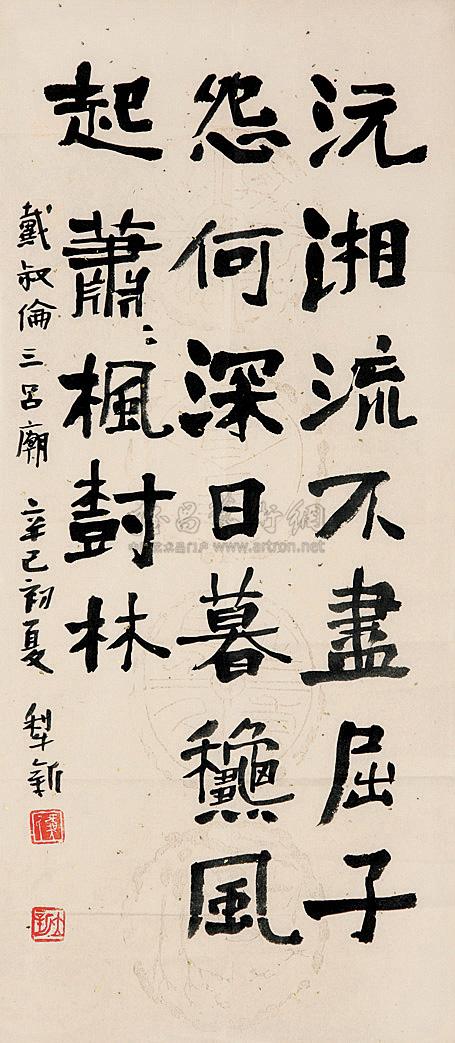 沅湘流不盡屈子
怨何深日暮龝風
起蕭〻楓樹林
戴叔倫三呂廟 辛巳初夏 犁新
雅昌藝術網
www.artron.net